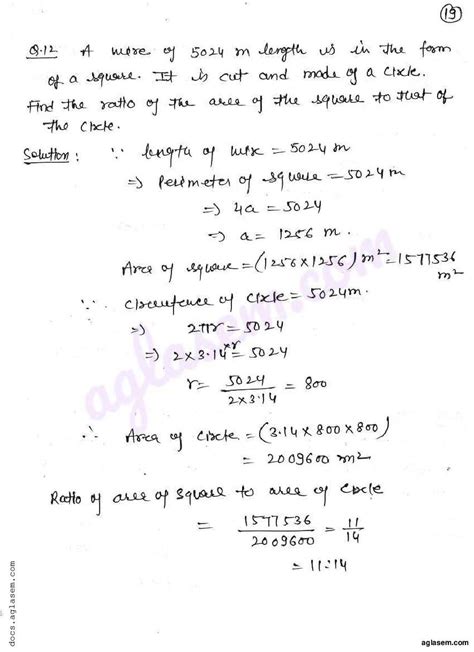 19
Q.12 A wire of 5024 m length is in the form
of a square. It is cut and made of a Circle.
Find the ratio of the area of the square to that of
the Circle.
Solution: ∵ length of wire = 5024 m
⇒ Perimeter of square = 5024 m
⇒ 4a = 5024
⇒ a = 1256 m.
Area of square = (1256 × 1256) m² = 1577536 m²
∵ Circumference of Circle = 5024m.
⇒ 2πr = 5024
⇒ 2 × 3.14 × r = 5024
r = 5024 / 2 × 3.14 = 800
∴ Area of Circle = (3.14 × 800 × 800)
= 2009600 m²
Ratio of area of square to area of Circle
= 1577536 / 2009600 = 11 / 14
= 11:14
aglasem.com
docs.aglasem.com
aglasem.com